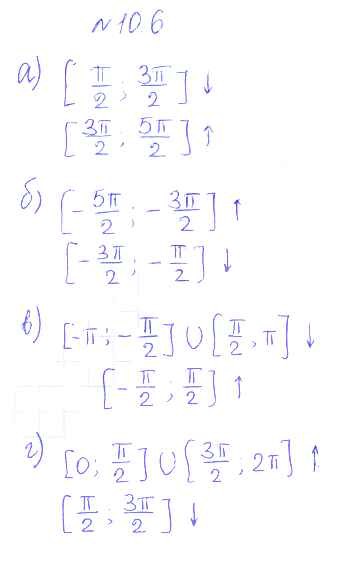 № 10 6
а) [π/2; 3π/2] ↓
[3π/2; 5π/2] ↑
б) [-5π/2; -3π/2] ↑
[-3π/2; -π/2] ↓
в) [-π; -π/2] ∪ [π/2, π] ↓
[-π/2; π/2] ↑
г) [0; π/2] ∪ [3π/2; 2π] ↑
[π/2; 3π/2] ↓